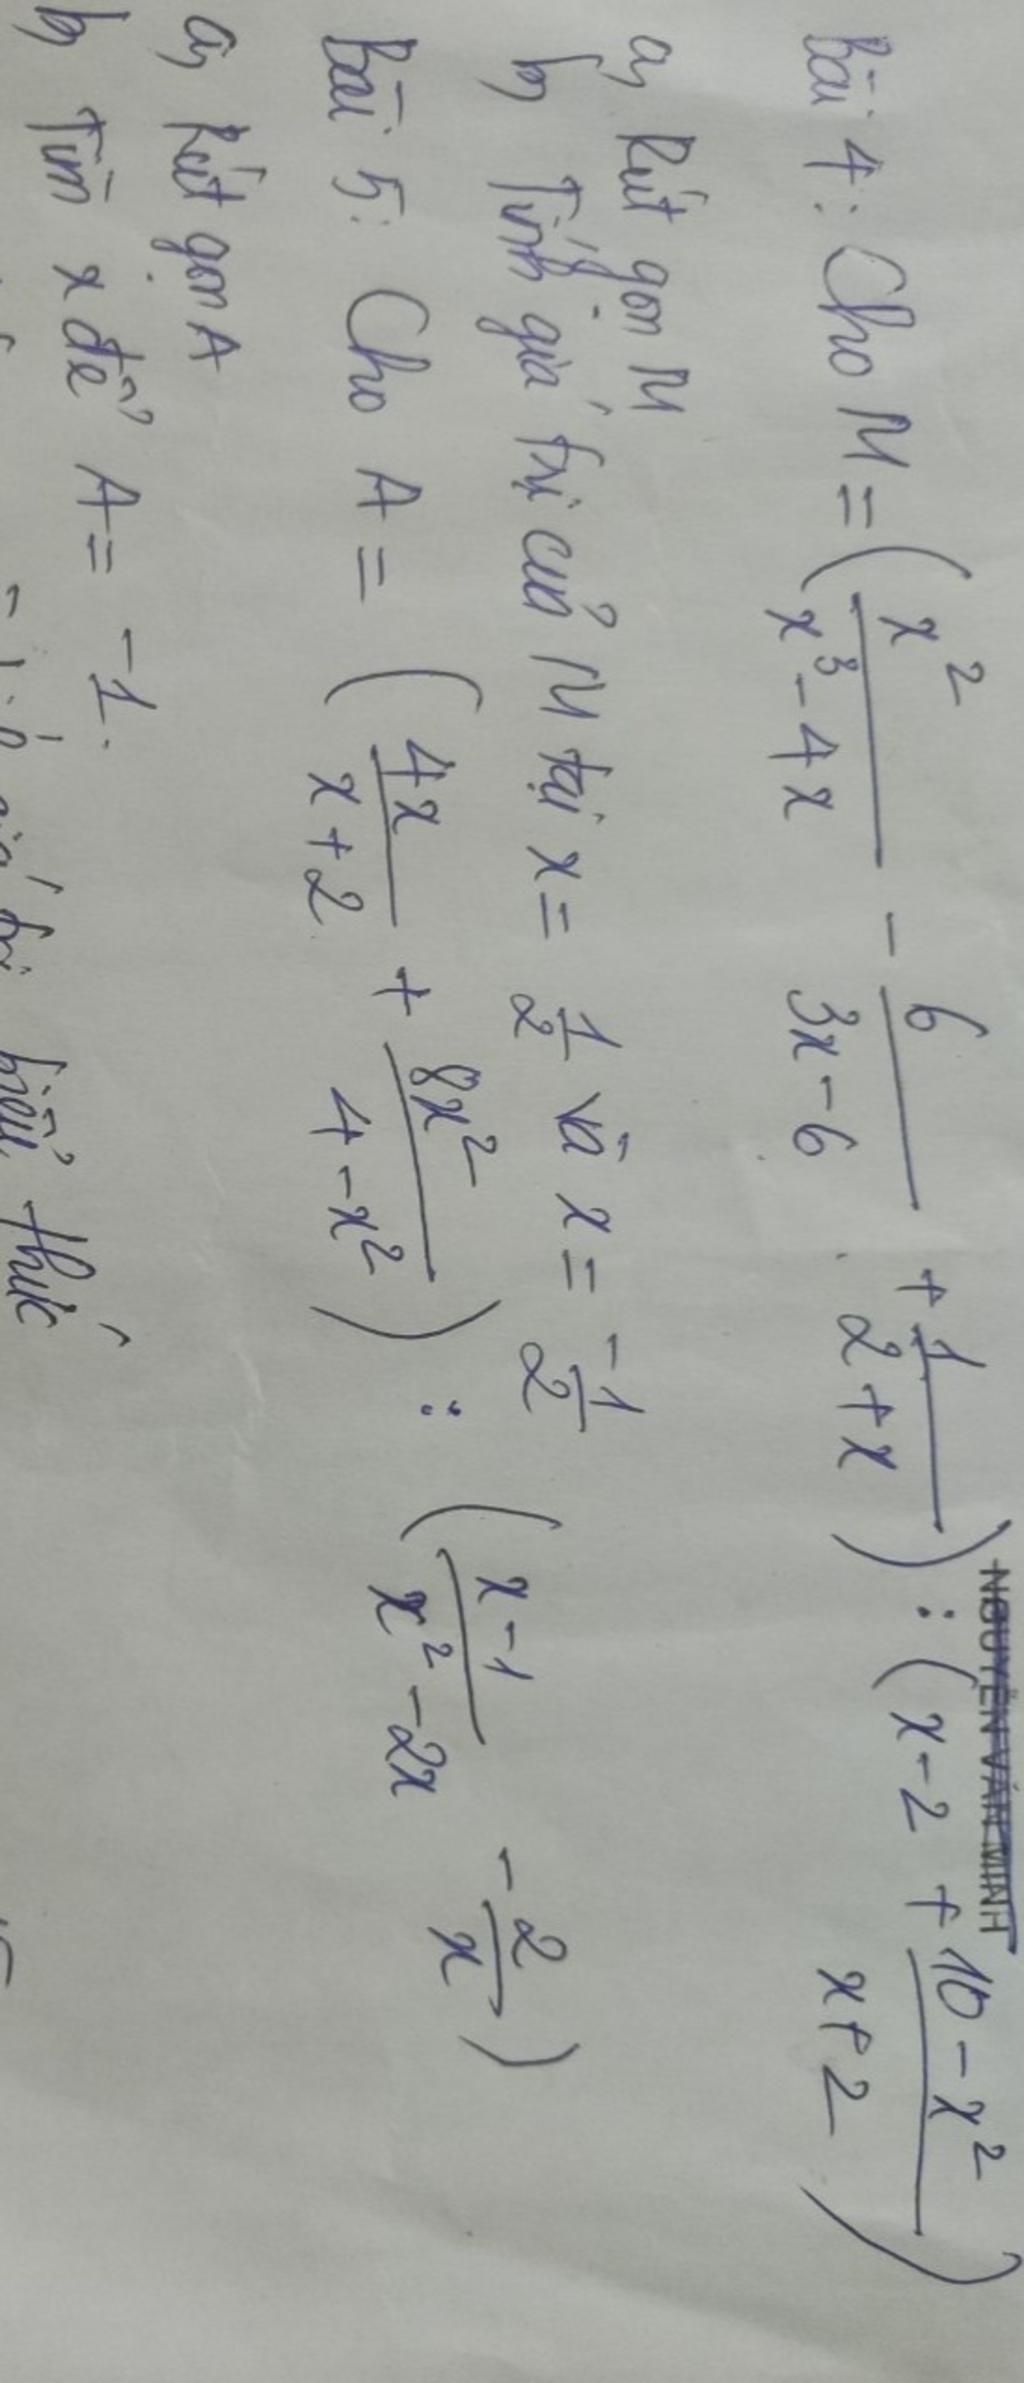 NGUYỄN VĂN MINH
Bài 4: Cho M = ( x²/(x³ - 4x) - 6/(3x - 6) + 1/(2 + x) ) : ( x - 2 + (10 - x²)/(x + 2) )
a, Rút gọn M
b, Tính giá trị của M tại x = 1/2 và x = -1/2
Bài 5: Cho A = ( 4x/(x + 2) + 8x²/(4 - x²) ) : ( (x - 1)/(x² - 2x) - 2/x )
a, Rút gọn A
b, Tìm x để A = -1.
giá trị biểu thức